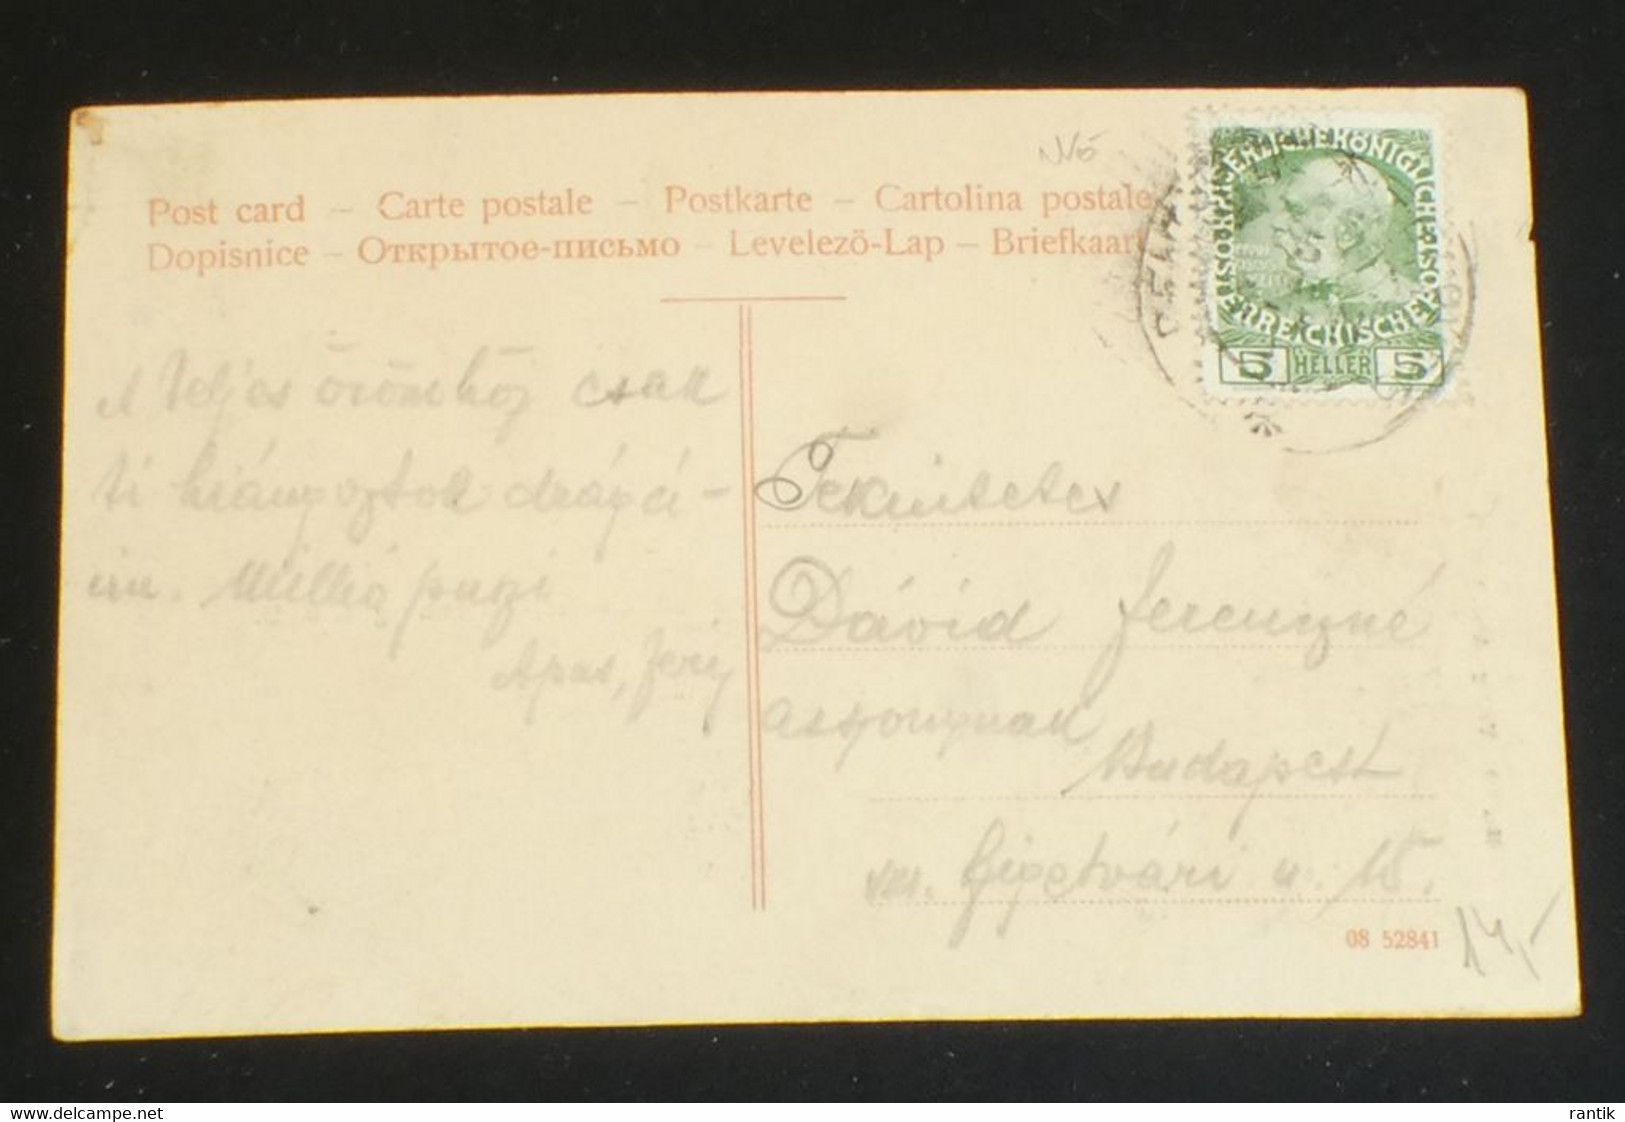 Nő
Post card – Carte postale – Postkarte – Cartolina postale
Dopisnice – Открытое-письмо – Levelező-Lap – Briefkaart
KAISERLICHE KÖNIGLICHE ÖSTERREICHISCHE POST
5 HELLER 5
A teljes örömhöz csak
ti hiányoztok drágái-
im. Millió puszi
Apus, Feri
Tekintetes
Dávid Ferenczné
asszonynak
Budapest
VIII. Szigetvári u. 15.
08 52841
14,-
www.delcampe.net
rantik